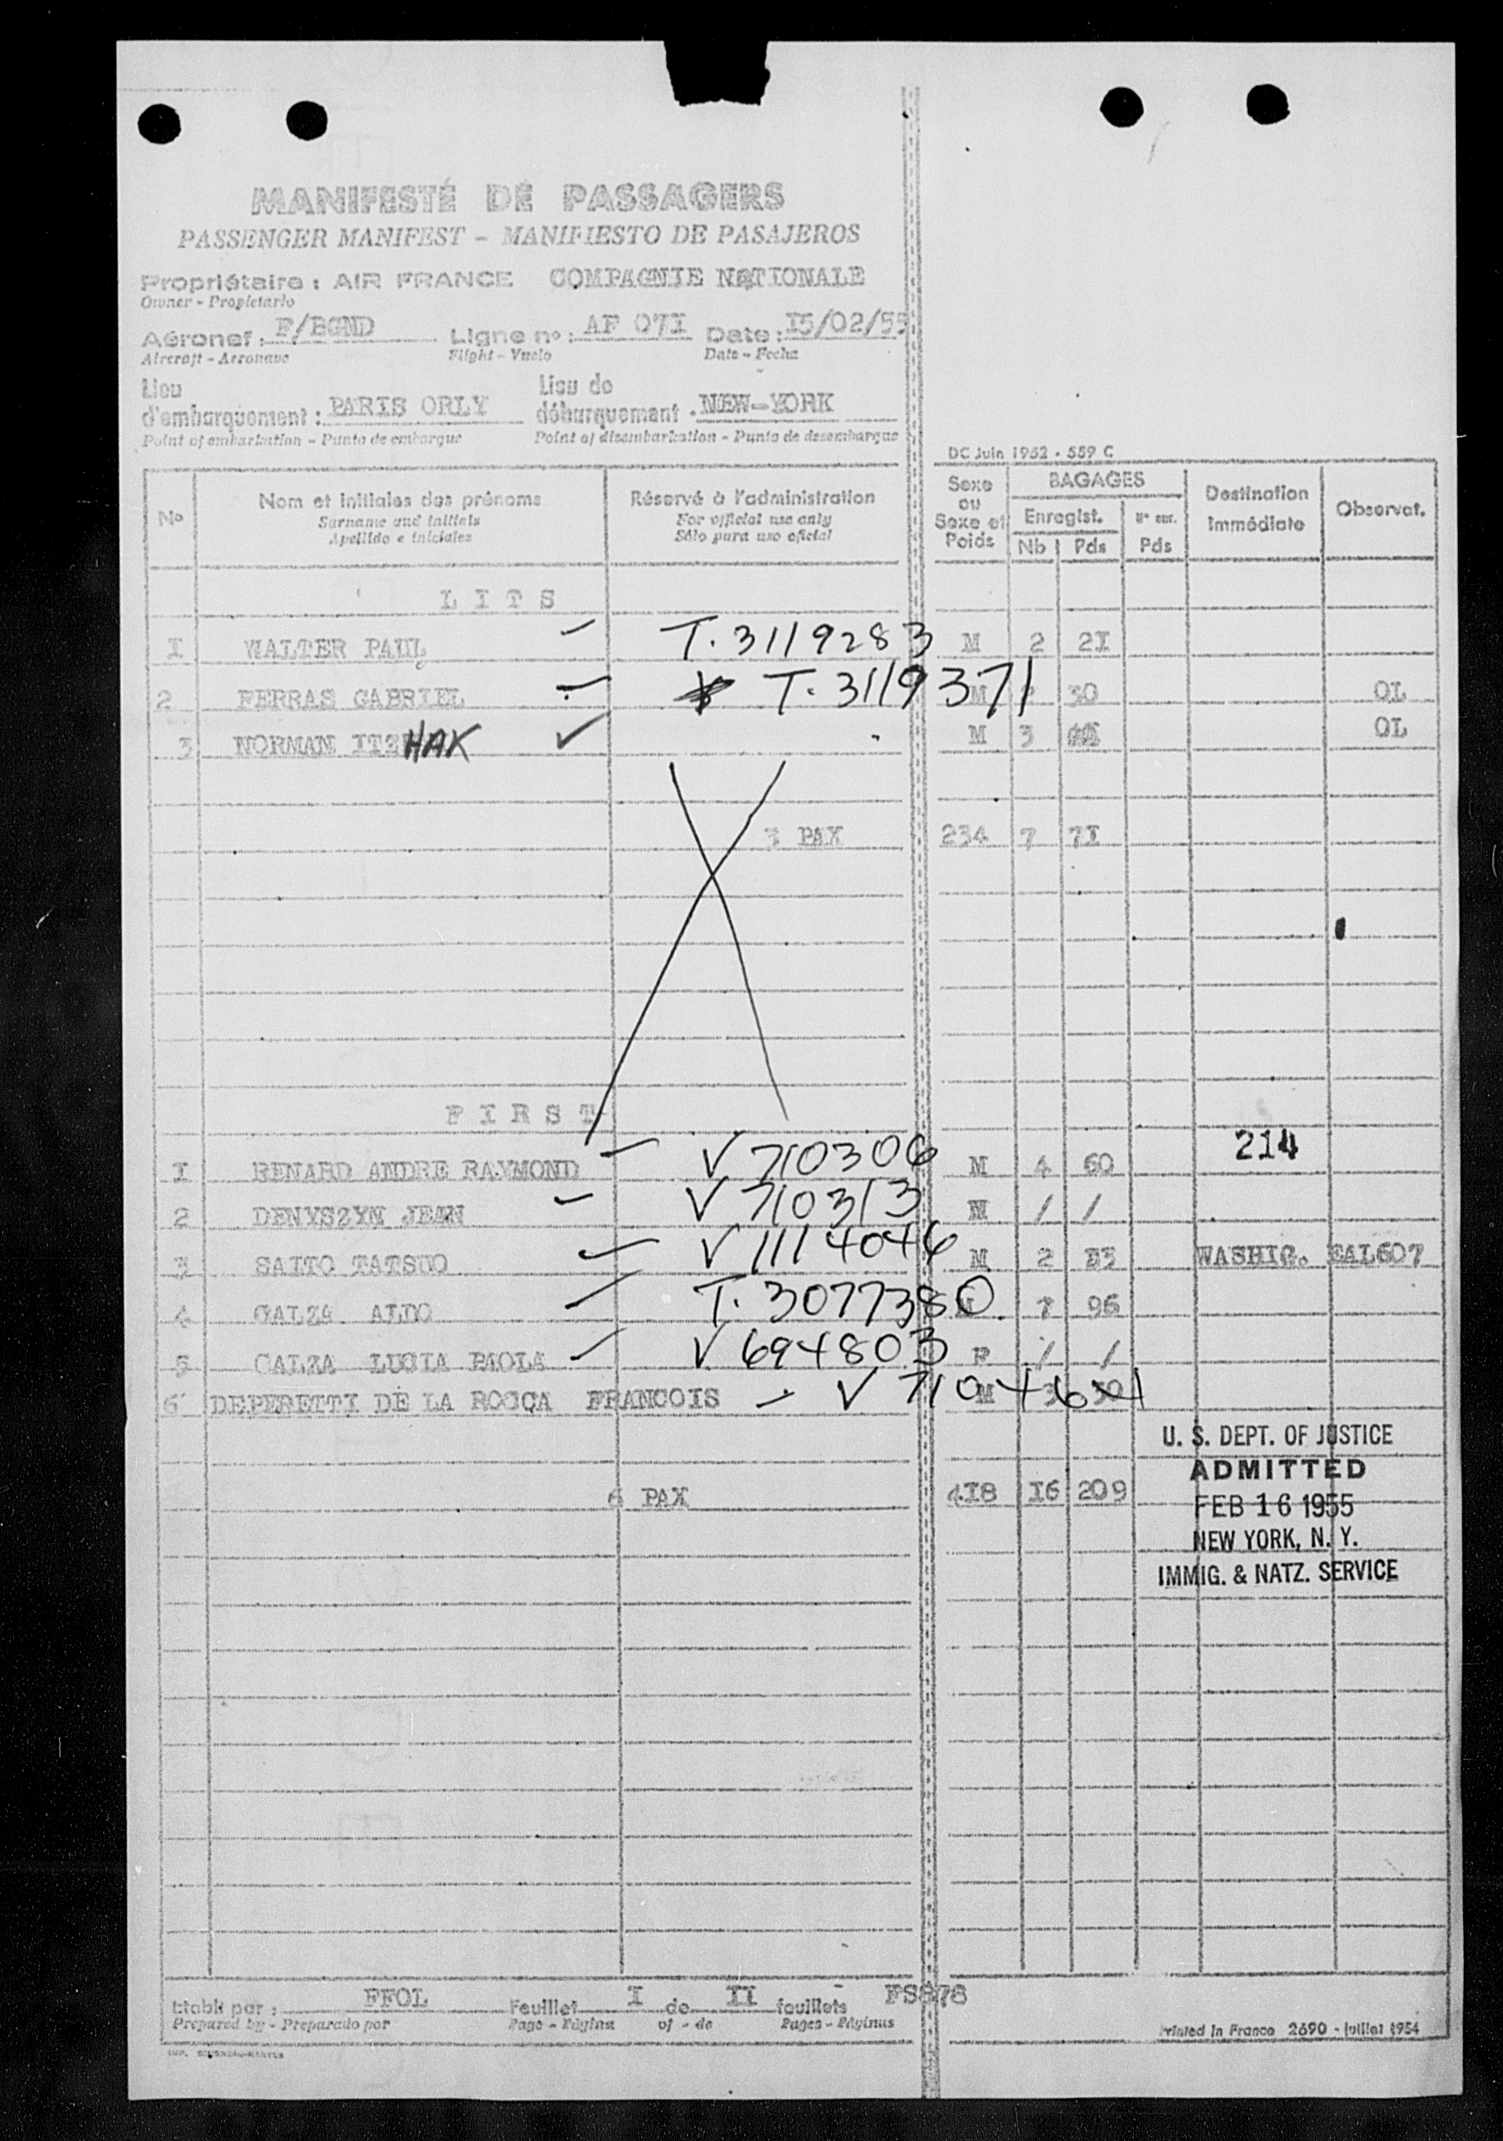 MANIFESTE DE PASSAGERS
PASSENGER MANIFEST - MANIFIESTO DE PASAJEROS
Propriétaire : AIR FRANCE COMPAGNIE NATIONALE
Owner - Propietario
Aéronef : F/BGND Ligne n° : AF 07I Date : I5/02/55
Aircraft - Aeronave Flight - Vuelo Date - Fecha
Lieu d'embarquement : PARIS ORLY Lieu de débarquement . NEW-YORK
Point of embarkation - Punto de embarque Point of disembarkation - Punto de desembarque
DC Juin 1952 - 559 C
No Nom et initiales des prénoms Réservé à l'administration Sexe ou Sexe et Poids BAGAGES Destination Immédiate Observat.
Surname and initials For official use only Enregist.
Apellido e iniciales Sólo para uso oficial Nb Pds Pds
L I T S
I WALTER PAUL T. 3119283 M 2 2I
2 FERRAS GABRIEL T. 3119371 M 30 OL
3 NORMAN ITZHAK M 3 OL
3 PAX 234 7 7I
F I R S T
214
I RENARD ANDRE RAYMOND V 710306 M 4 60
2 DENYSZYM JEAN V 710313 M / /
3 SAITO TATSUO V 1114046 M 2 23 WASHIG. EAL607
4 GALZA ALDO T. 3077380 7 96
5 CALZA LUCIA PAOLA V 694803 F / /
6 DEPERETTI DE LA ROCCA FRANCOIS V 710464 M 3 30
6 PAX 4I8 I6 209
U. S. DEPT. OF JUSTICE
ADMITTED
FEB 16 1955
NEW YORK, N. Y.
IMMIG. & NATZ. SERVICE
Etabli par : FFOL Feuillet I de II feuillets FS878
Prepared by - Preparado por Page - Página of - de Pages - Páginas
Printed in France 2690 - juillet 1954